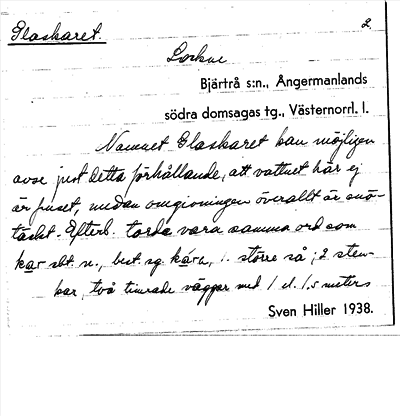 Glaskaret. 2.
Lockne
Bjärtrå s:n., Ångermanlands
södra domsagas tg., Västernorrl. l.
Namnet Glaskaret kan möjligen
avse just detta förhållande, att vattnet här ej
är fruset, medan omgivningen överallt är snö-
täckt. Efterl. torde vara samma ord som
kar sbt. n., best. sg. större så; 2 sten-
kar, två timrade väggar med 1 el. 1.5 meters
Sven Hiller 1938.